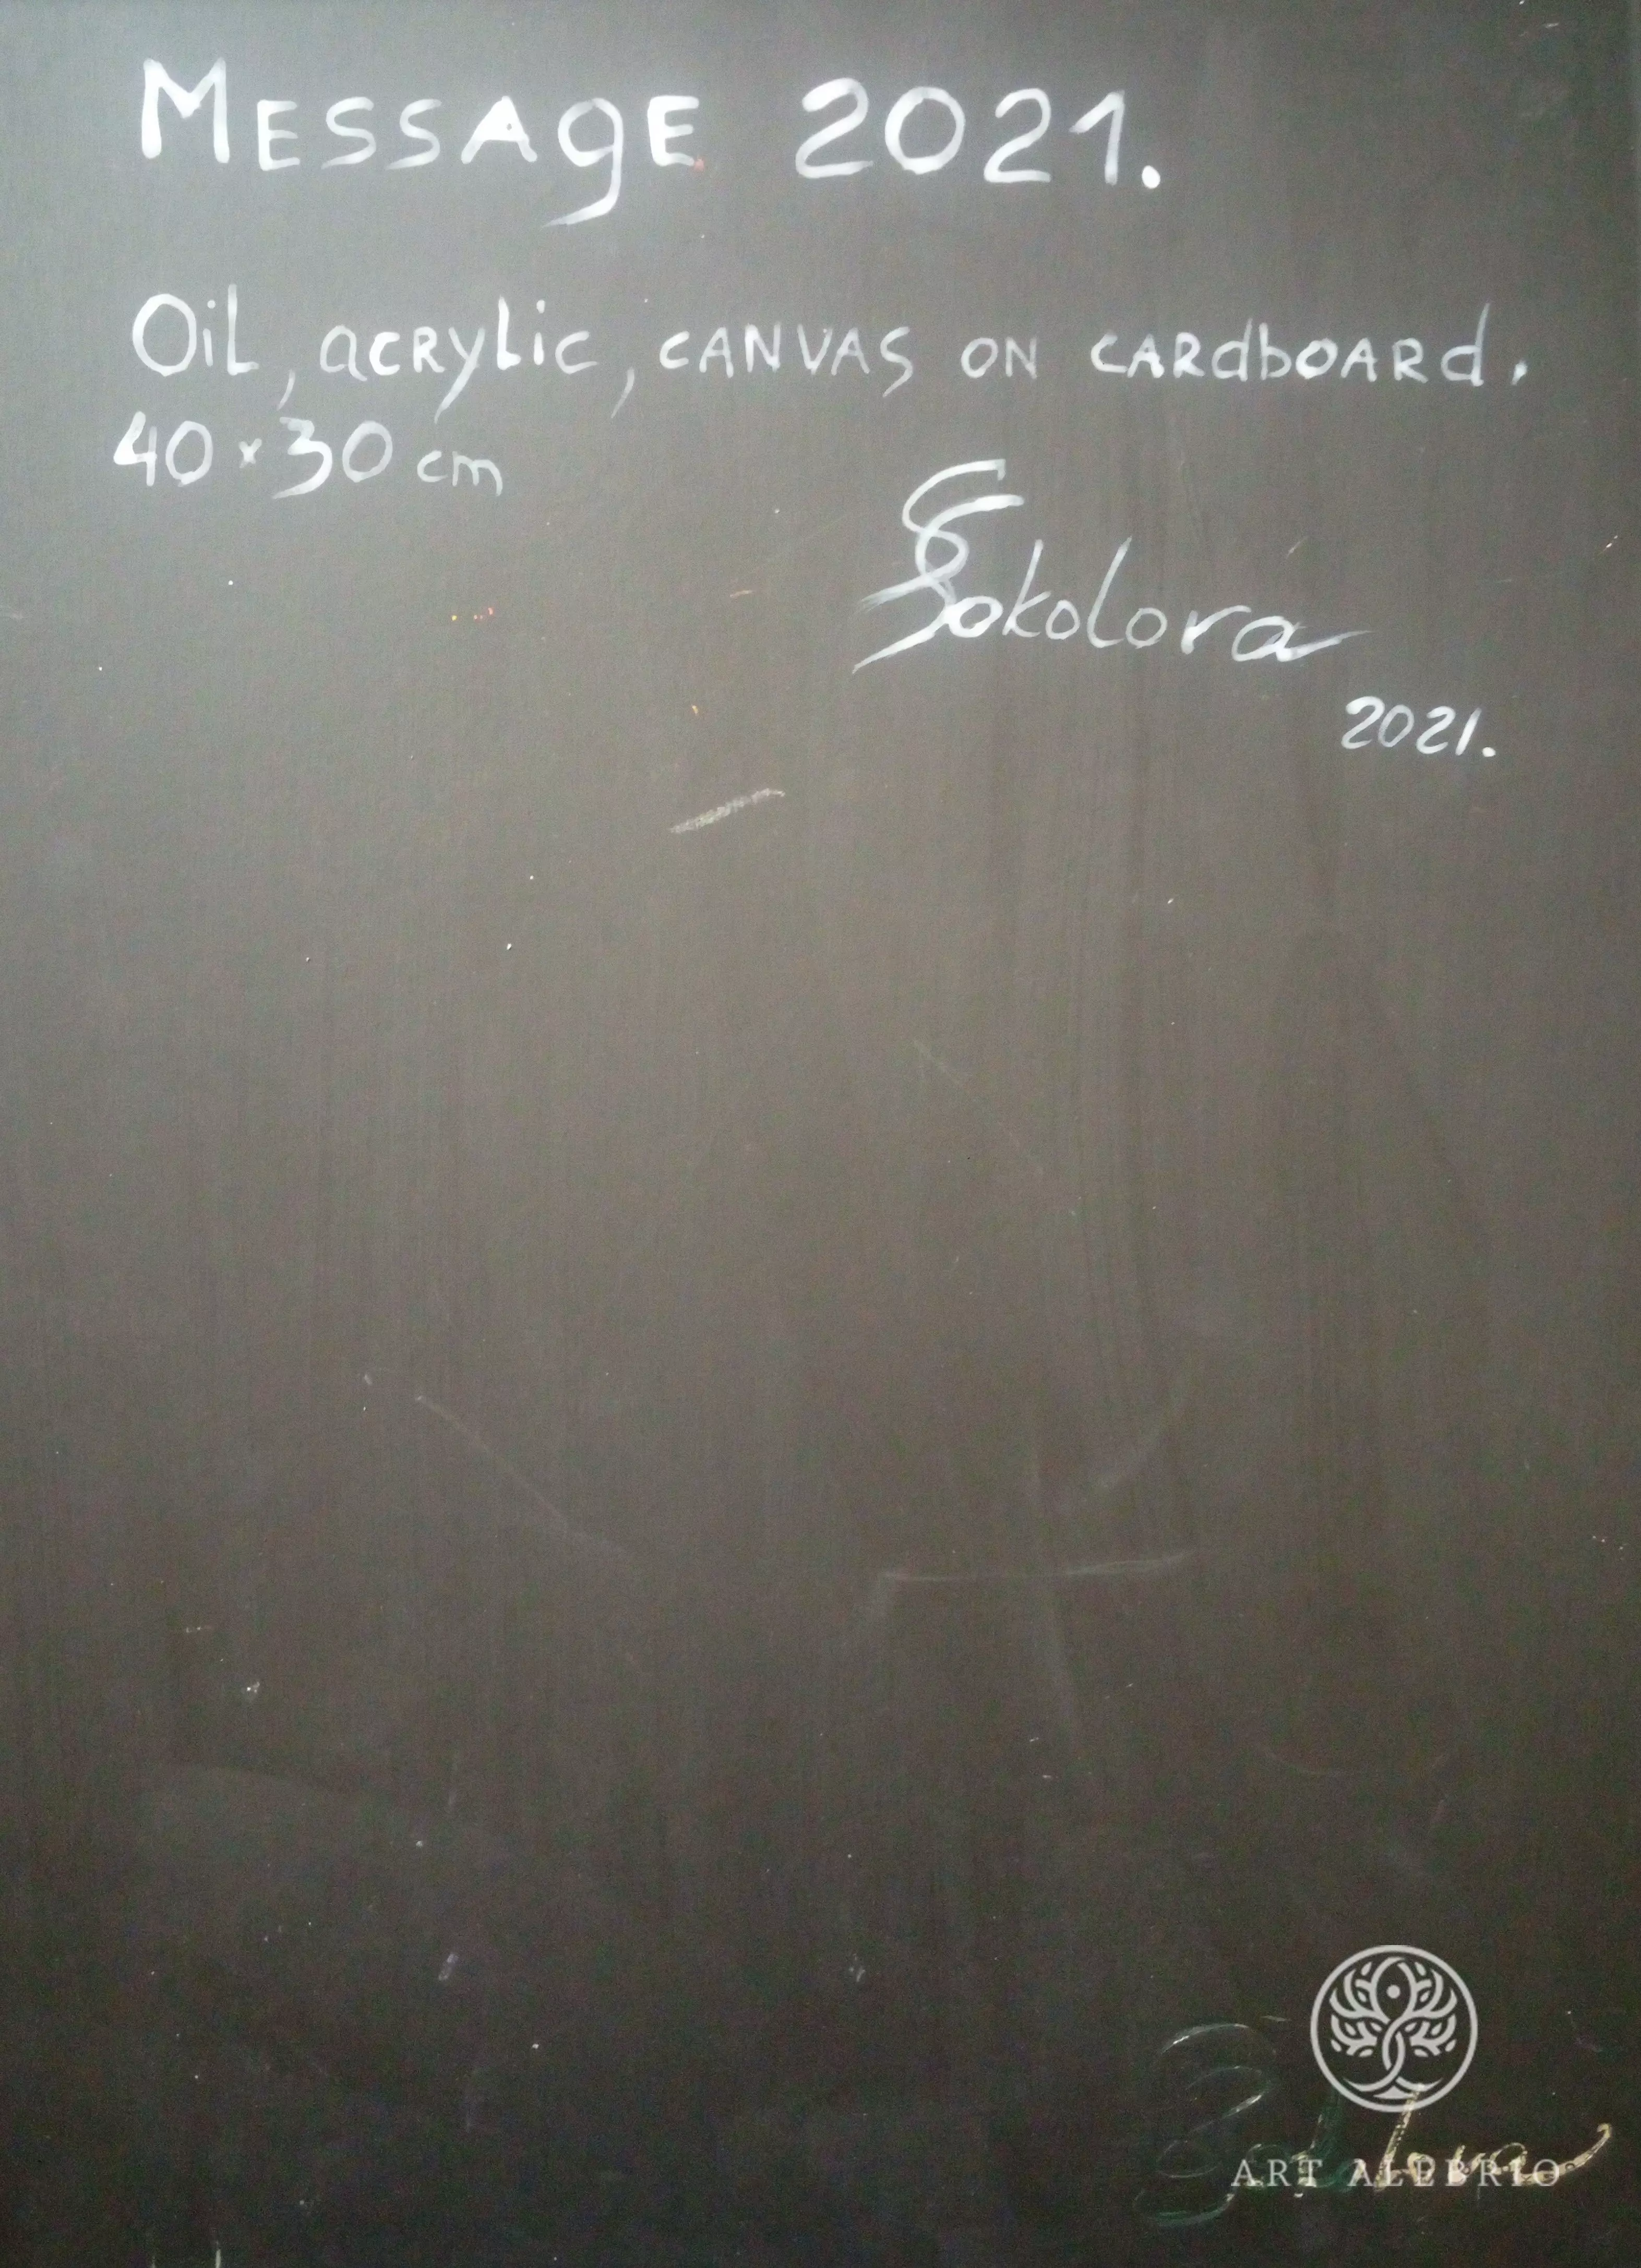 Message 2021.
Oil, acrylic, canvas on cardboard.
40 × 30 cm
Sokolova
2021.
Sokolova
ART ALEBRIO